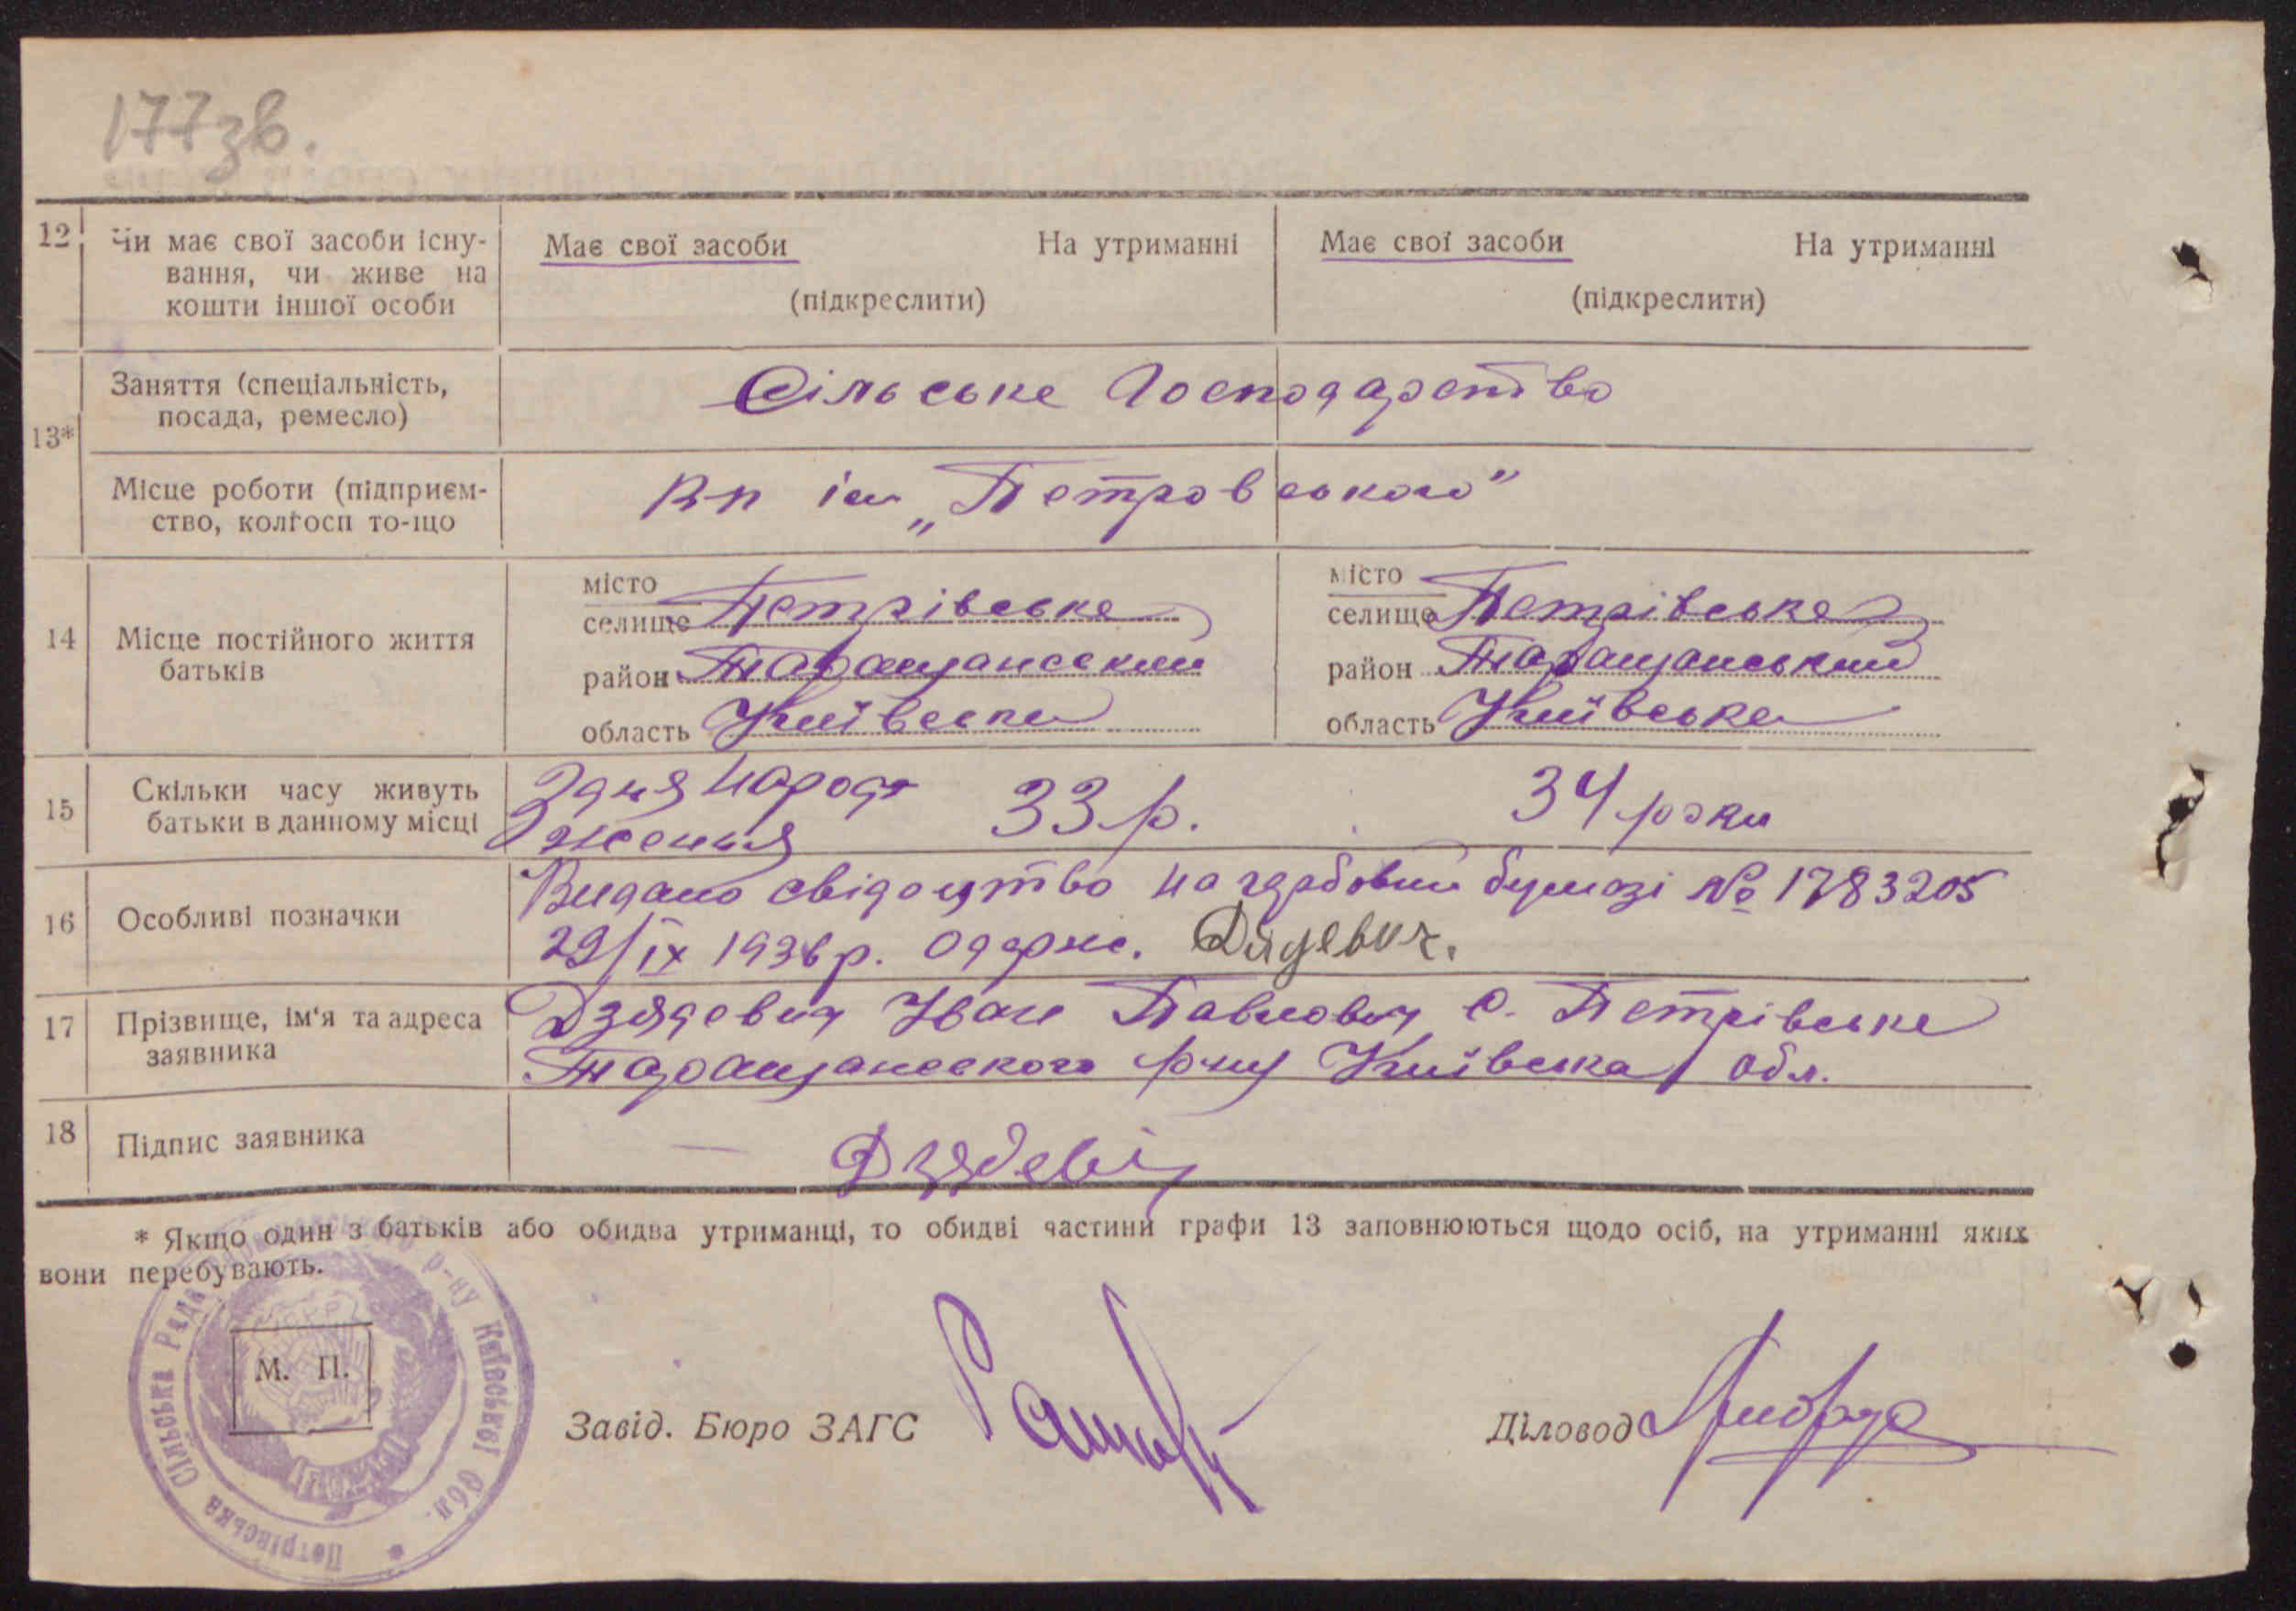 177зв.
12 Чи має свої засоби існу-
вання, чи живе на
кошти іншої особи
Має свої засоби На утриманні
(підкреслити)
Має свої засоби На утриманні
(підкреслити)
13*
Заняття (спеціальність,
посада, ремесло)
Сільське Господарство
Місце роботи (підприєм-
ство, колгосп то-що
ім „Петровського"
14 Місце постійного життя
батьків
місто
селище Петрівське
район Таращанський
область Київська
місто
селище Петрівське
район Таращанський
область Київська
15 Скільки часу живуть
батьки в данному місці
З дня народ
ження 33 р.
34 роки
16 Особливі позначки
Видано свідоцтво на гербовий бумазі № 1783205
29/IX 1936 р. Одерж.
17 Прізвище, ім'я та адреса
заявника
Дзядевич Іван Павлович с. Петрівське
Таращанского р-ну Київська обл.
18 Підпис заявника
Дзядевич
* Якщо один з батьків або обидва утриманці, то обидві частини графи 13 заповнюються щодо осіб, на утриманні яких
вони перебувають.
Петрівська Сільська Рада р-ну Київської Обл.
М. П.
Завід. Бюро ЗАГС
Діловод